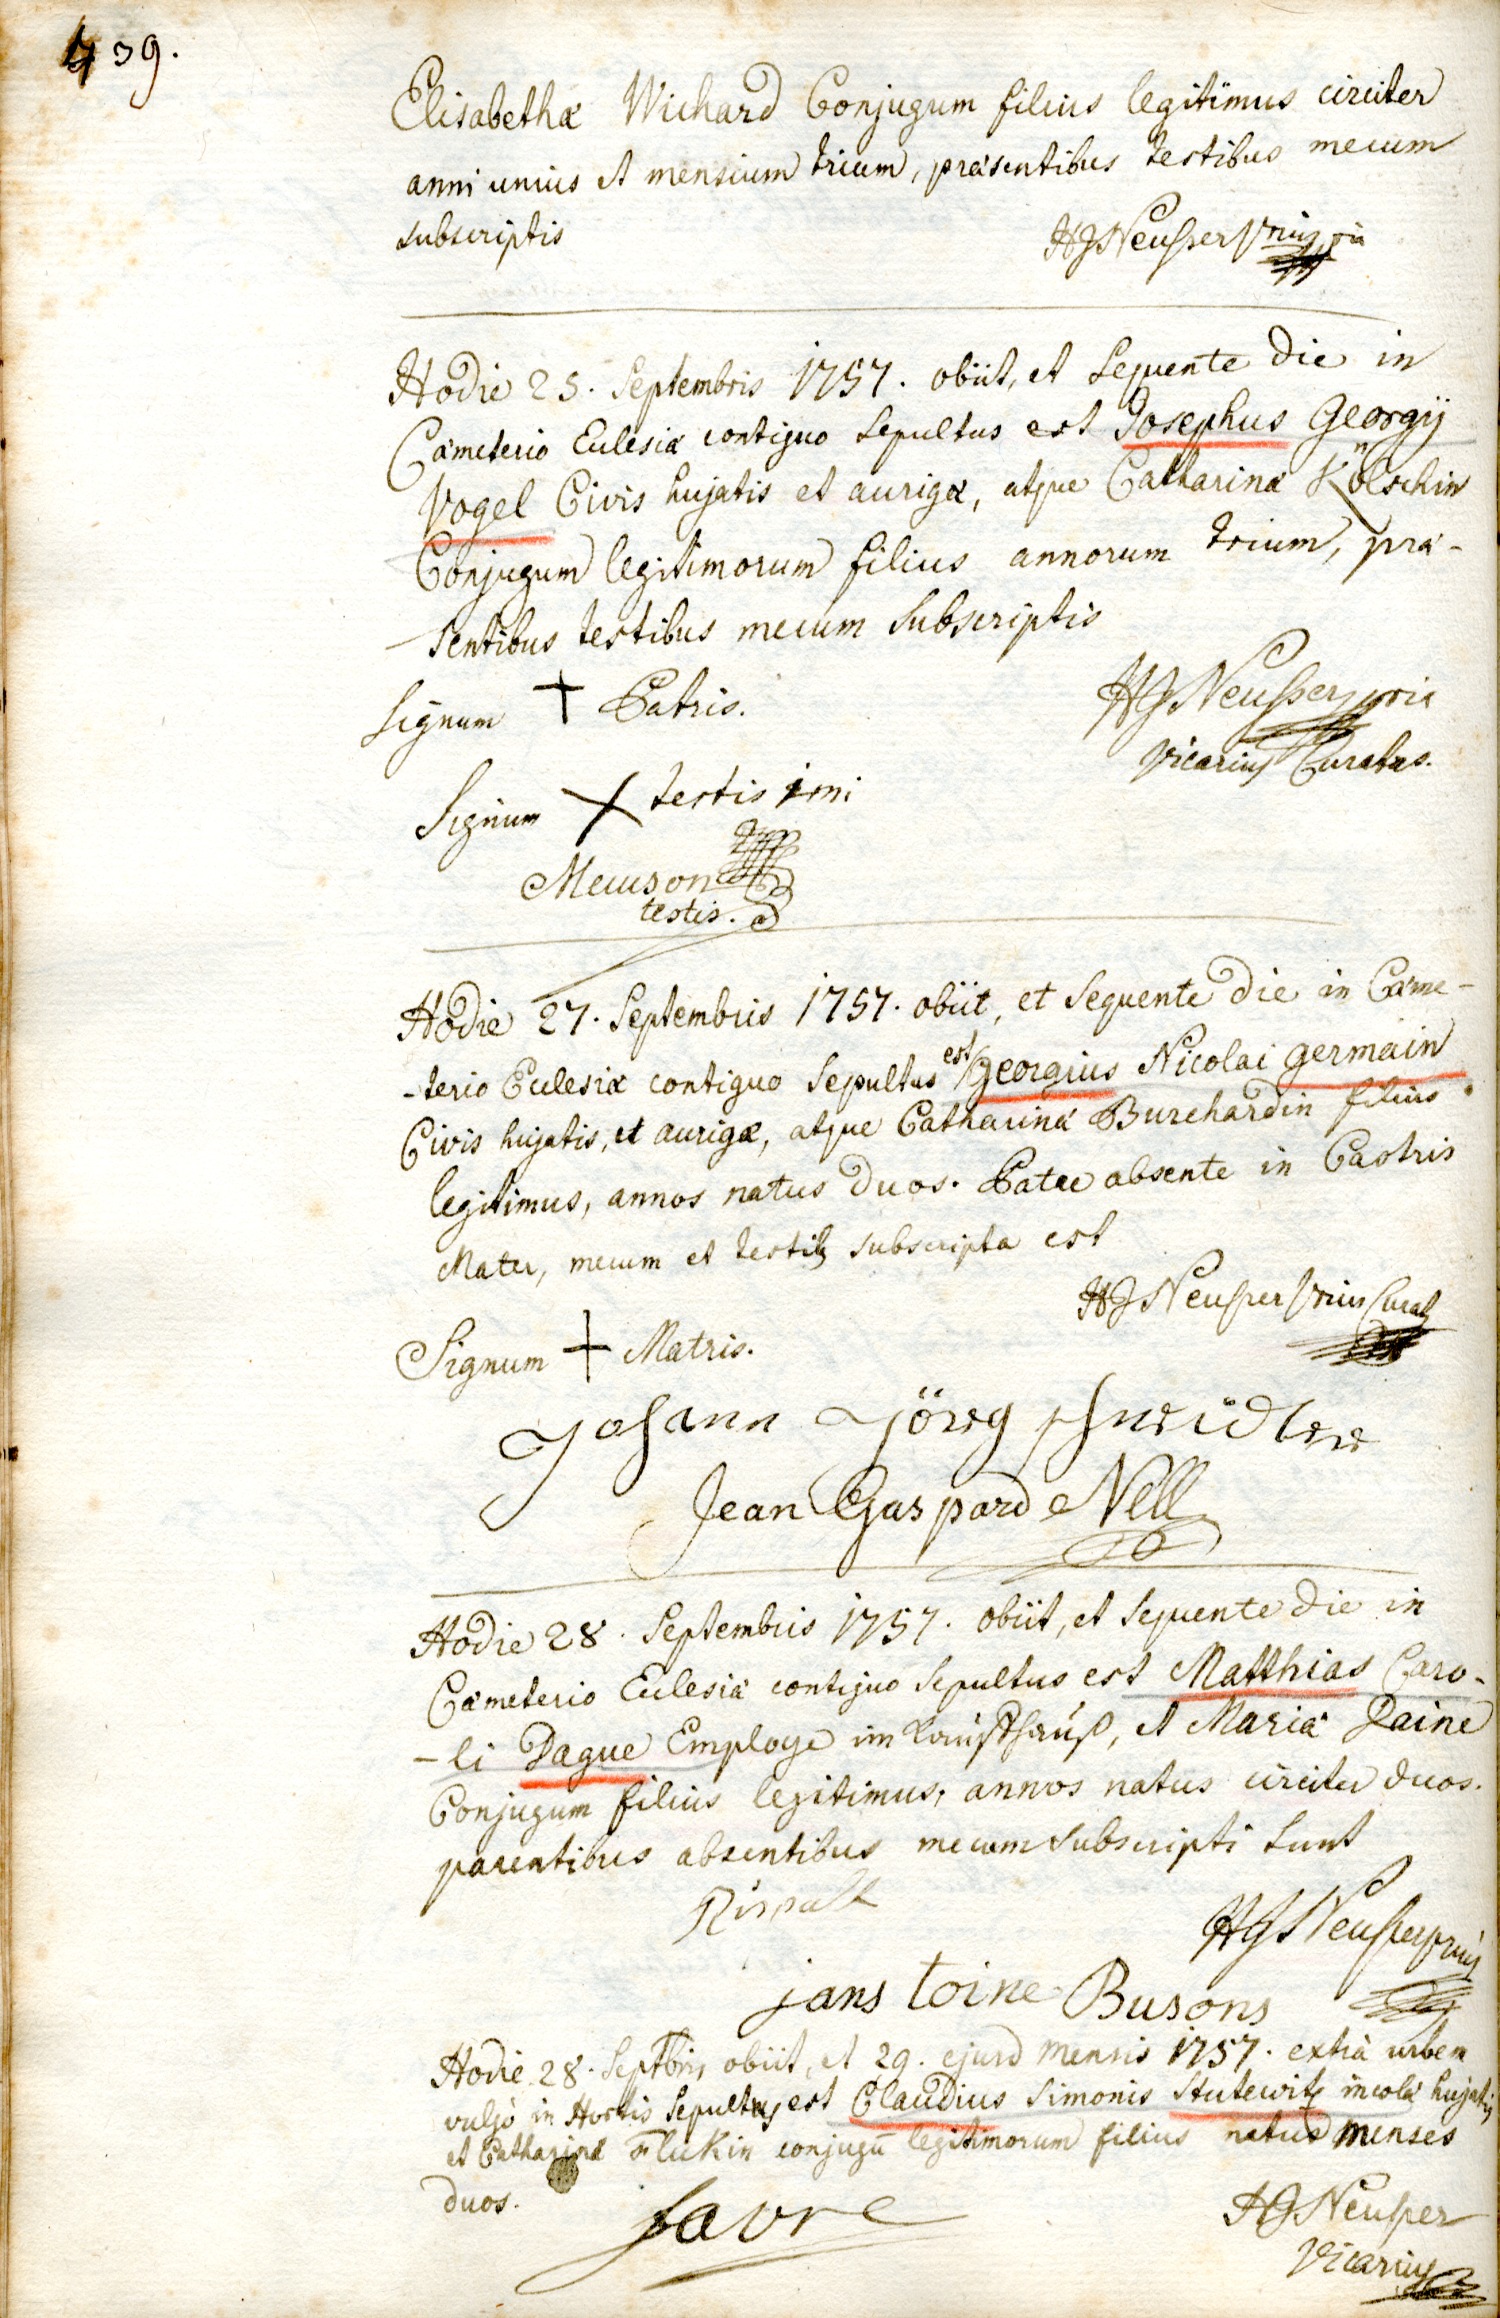 439.
Elisabethæ Wichard Conjugum filius legitimus circiter
anni unius et mensium trium, præsentibus testibus mecum
subscriptis
HJ Neusser
Hodie 25. Septembris 1757. obiit, et sequente die in
Cæmeterio Ecclesiæ contiguo sepultus est Josephus Georgij
Vogel Civis hujatis et aurigæ, atque Catharinæ
Conjugum legitimorum filius annorum trium, præ-
sentibus testibus mecum subscriptis
Signum + Patris.
HJ Neusser
Vicarius Curatus.
Signum X testis 1mi
testis.
Hodie 27. Septembris 1757. obiit, et sequente die in Cæme-
-terio Ecclesiæ contiguo sepultus est Georgius Nicolai Germain
Civis hujatis, et aurigæ, atque Catharinæ Burchardin filius
legitimus, annos natus duos. Patre absente in Castris
Mater, mecum et testib subscripta est
HJ Neusser
Signum + Matris.
Johann Jörg
Jean Gaspard Nell
Hodie 28. Septembris 1757. obiit, et sequente die in
Cæmeterio Ecclesiæ contiguo sepultus est Matthias Caro-
-li Dague Employe im, et Mariæ Daine
Conjugum filius legitimus, annos natus circiter duos.
parentibus absentibus mecum subscripti sunt
HJ Neusser
jans toine Busons
Hodie 28. Septbris obiit, et 29. ejusd mensis 1757. extra urbem
vulgo in Hortis sepultus est Claudius Simonis Stutewitz incolæ hujatis
et Catharinæ Flukin conjugū legitimorum filius natus menses
duos.
favre
HJ Neusser
Vicarius